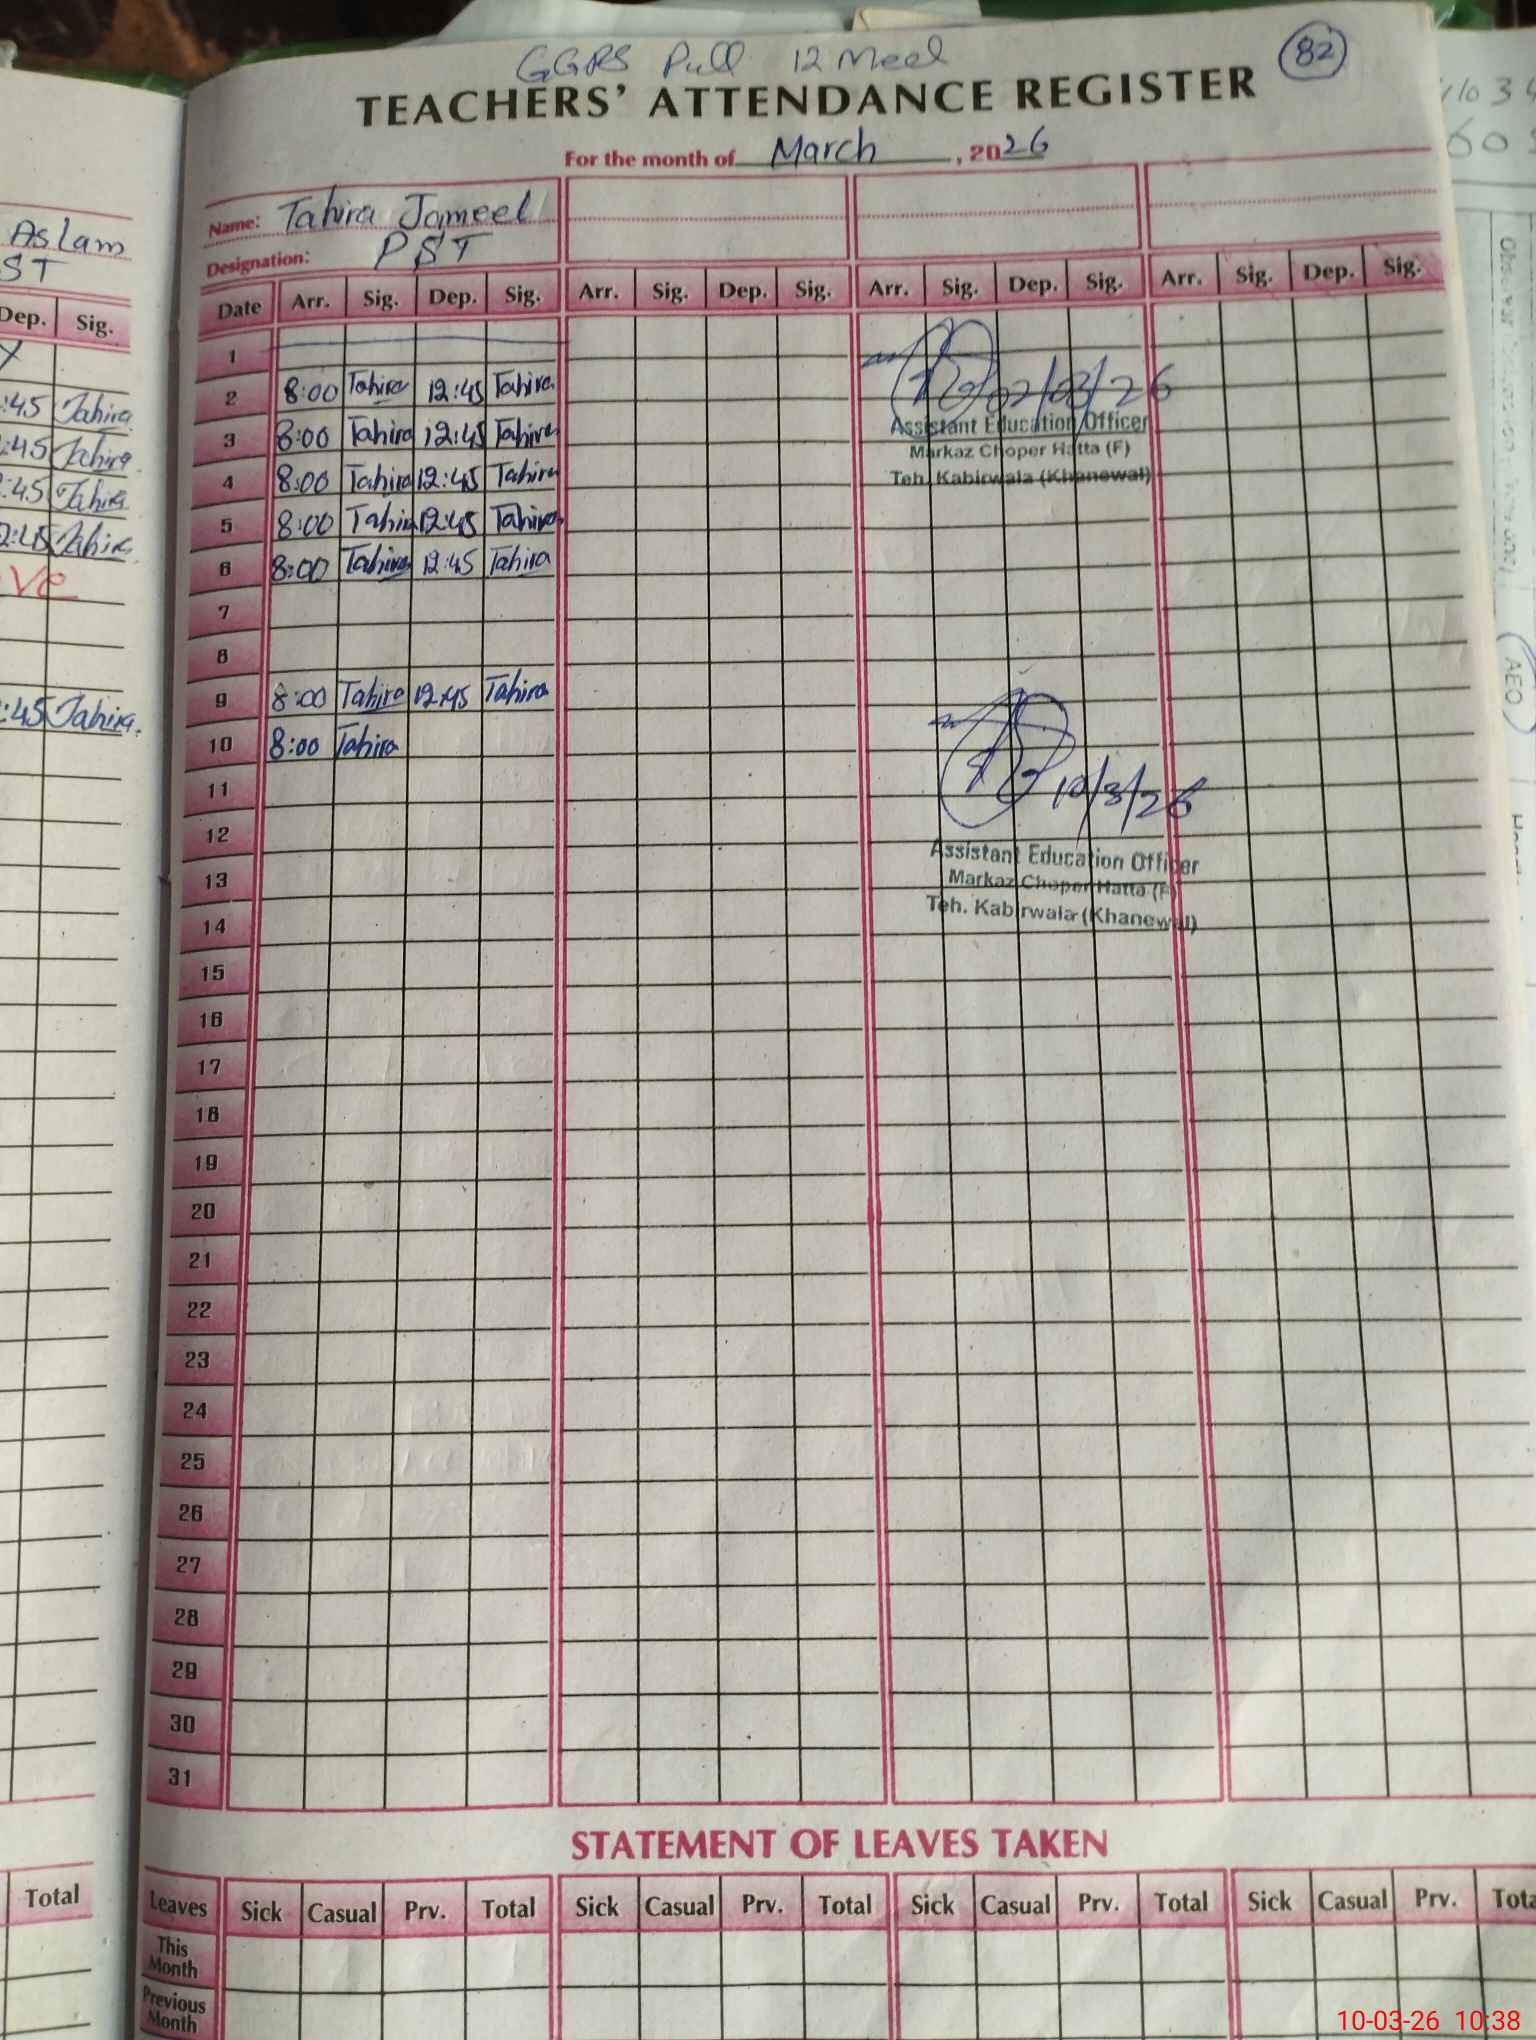 GGPS Pull 12 Meel 82
TEACHERS' ATTENDANCE REGISTER
For the month of March, 2026
Name: Tahira Jameel
Designation: PST
Date Arr. Sig. Dep. Sig. Arr. Sig. Dep. Sig. Arr. Sig. Dep. Sig. Arr. Sig. Dep. Sig.
1
2 8:00 Tahira 12:45 Tahira 02/03/26
3 8:00 Tahira 12:45 Tahira
Assistant Education Officer
Markaz Choper Hatta (F)
4 8:00 Tahira 12:45 Tahira
Teh. Kabirwala (Khanewal)
5 8:00 Tahira 12:45 Tahira
6 8:00 Tahira 12:45 Tahira
7
8
9 8:00 Tahira 12:45 Tahira
10 8:00 Tahira
11 10/3/26
12
Assistant Education Officer
13
Markaz Choper Hatta (F)
Teh. Kabirwala (Khanewal)
14
15
16
17
18
19
20
21
22
23
24
25
26
27
28
29
30
31
STATEMENT OF LEAVES TAKEN
Leaves Sick Casual Prv. Total Sick Casual Prv. Total Sick Casual Prv. Total Sick Casual Prv.
This
Month
Previous
Month
Aslam
ST
Dep. Sig.
:45 Tahira
:45 Tahira
:45 Tahira
2:45 Tahira
ve
:45 Tahira
Total
AEO
10-03-26 10:38